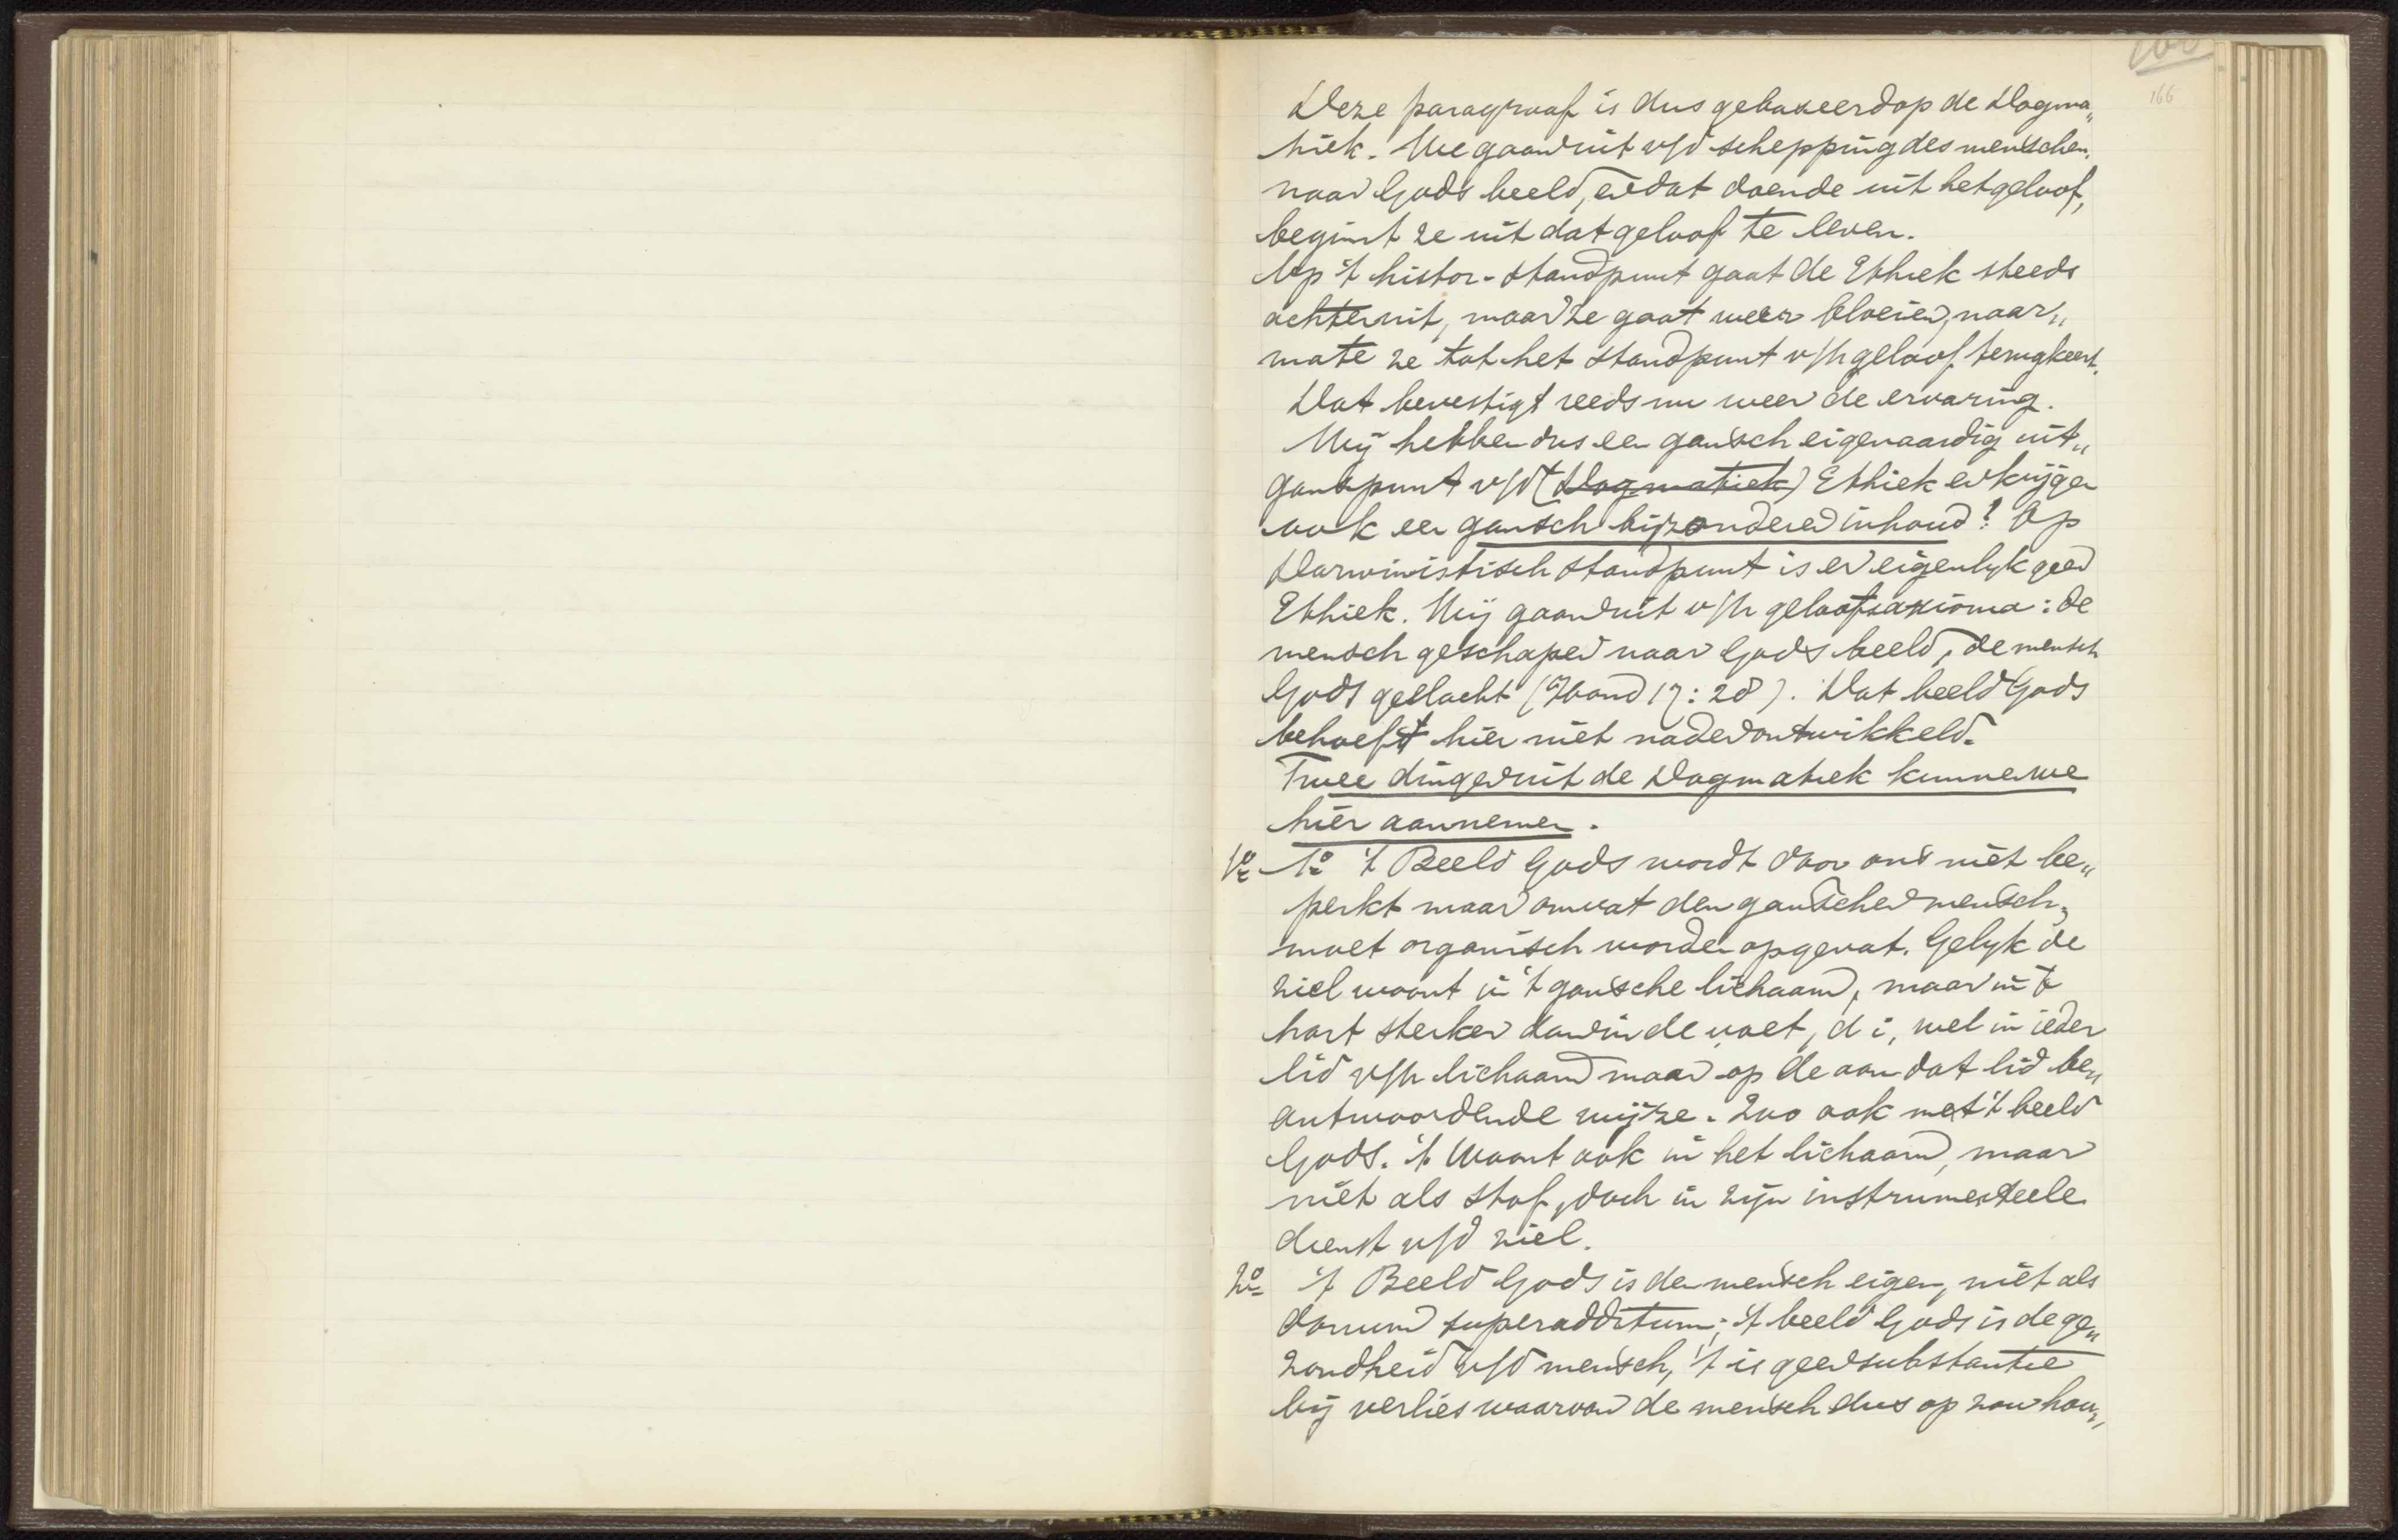 166
Deze paragraaf is dus gebaseerd op de Dogma„
tiek. We gaan uit v/d schepping des menschen
naar Gods beeld, en dat doende uit het geloof,
begint ze uit dat geloof te leven.
Op 't histor. standpunt gaat de Ethiek steeds
achteruit, maar ze gaat weer bloeien, naar„
mate ze tot het standpunt v/h geloof terugkeert.
Dat bevestigt reeds nu weer de ervaring.
Wij hebben dus een gansch eigenaardig uit„
gangspunt v/d (Dogmatiek) Ethiek en krijgen
ook een gansch bijzonderen inhoud! Op
Darwinistisch standpunt is er eigenlyk geen
Ethiek. Wij gaan uit v/h geloofsaxioma: de
mensch geschapen naar Gods beeld, de mensch
Gods geslacht (Hand 17:28). Dat beeld Gods
behoeft hier niet nader ontwikkeld.
Twee dingen uit de Dogmatiek kunnen we
hier aannemen.
1o 1o 't Beeld Gods wordt door ons niet be„
perkt maar omvat den ganschen mensch,
moet organisch worden opgevat. Gelyk de
ziel woont in 't gansche lichaam, maar in 't
hart sterker dan in de voet, d i, wel in ieder
lid v/h lichaam maar op de aan dat lid be„
antwoordende wijze. Zoo ook met 't beeld
Gods. 't Woont ook in het lichaam, maar
niet als stof, doch in zijn instrumenteele
dienst v/d ziel.
2o 't Beeld Gods is den mensch eigen, niet als
donum superadditum; 't beeld Gods is de ge„
zondheid v/d mensch, 't is geen substantie
bij verlies waarvan de mensch dus op zou hou„